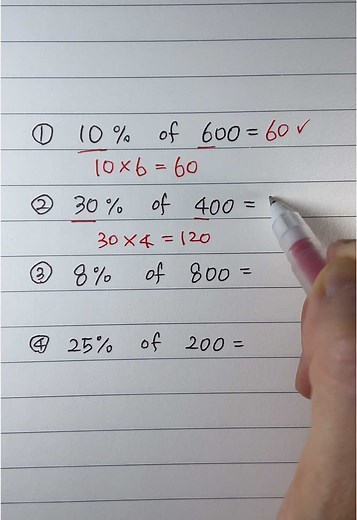 ① 10% of 600 = 60 ✓
10 × 6 = 60
② 30% of 400 =
30 × 4 = 120
③ 8% of 800 =
④ 25% of 200 =